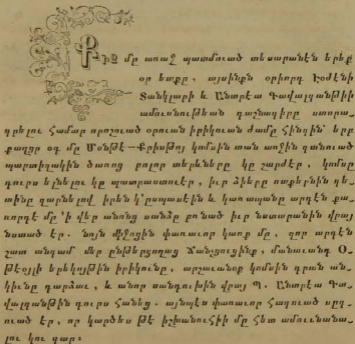 Քիչ մը առաջ պատմուած տեսարանէն երեք
օր ետքը, այսինքն օրիորդ Էօժէնի
Տանկլարի և Անտրէա Գավալքանթիի
ամուսնութեան դաշնագիրը ստորա-
գրելու համար որոշուած օրուան իրիկուան ժամը հինգին՝ երբ
քաղցր օդ մը Մօնթէ—Քրիսթոյ կոմսին տան առջին գտնուած
պարտիզակին ծառոց բոլոր տերևները կը շարժէր, կոմսը
դուրս ելնելու կը պատրաստուէր, իւր ձիերը ոտքերնին գե-
տինը զարնելով իրեն կ՚ըսպասէին և կառապանը արդէն քա-
ռորդէ մը ՚ի վեր անոնց սանձը բռնած իւր նստարանին վրայ
նստած էր. նոյն միջոցին փառաւոր կառք մը, զոր արդէն
շատ անգամ մեր ընթերցողաց ճանչցուցինք, մանաւանդ Օ-
թէօյլի երեկոյթին իրիկունը, արշաւանօք կոմսին դրան ան-
կիւնը դարձաւ, և անոր սանդուխին վրայ Պ. Անտրէա Գա-
վալքանթին դուրս հանեց. այնպէս փառաւոր հագուած սըգ-
ուած էր, որ կարծես թէ իշխանուհիի մը հետ ամուսնանա-
լու կու գար։